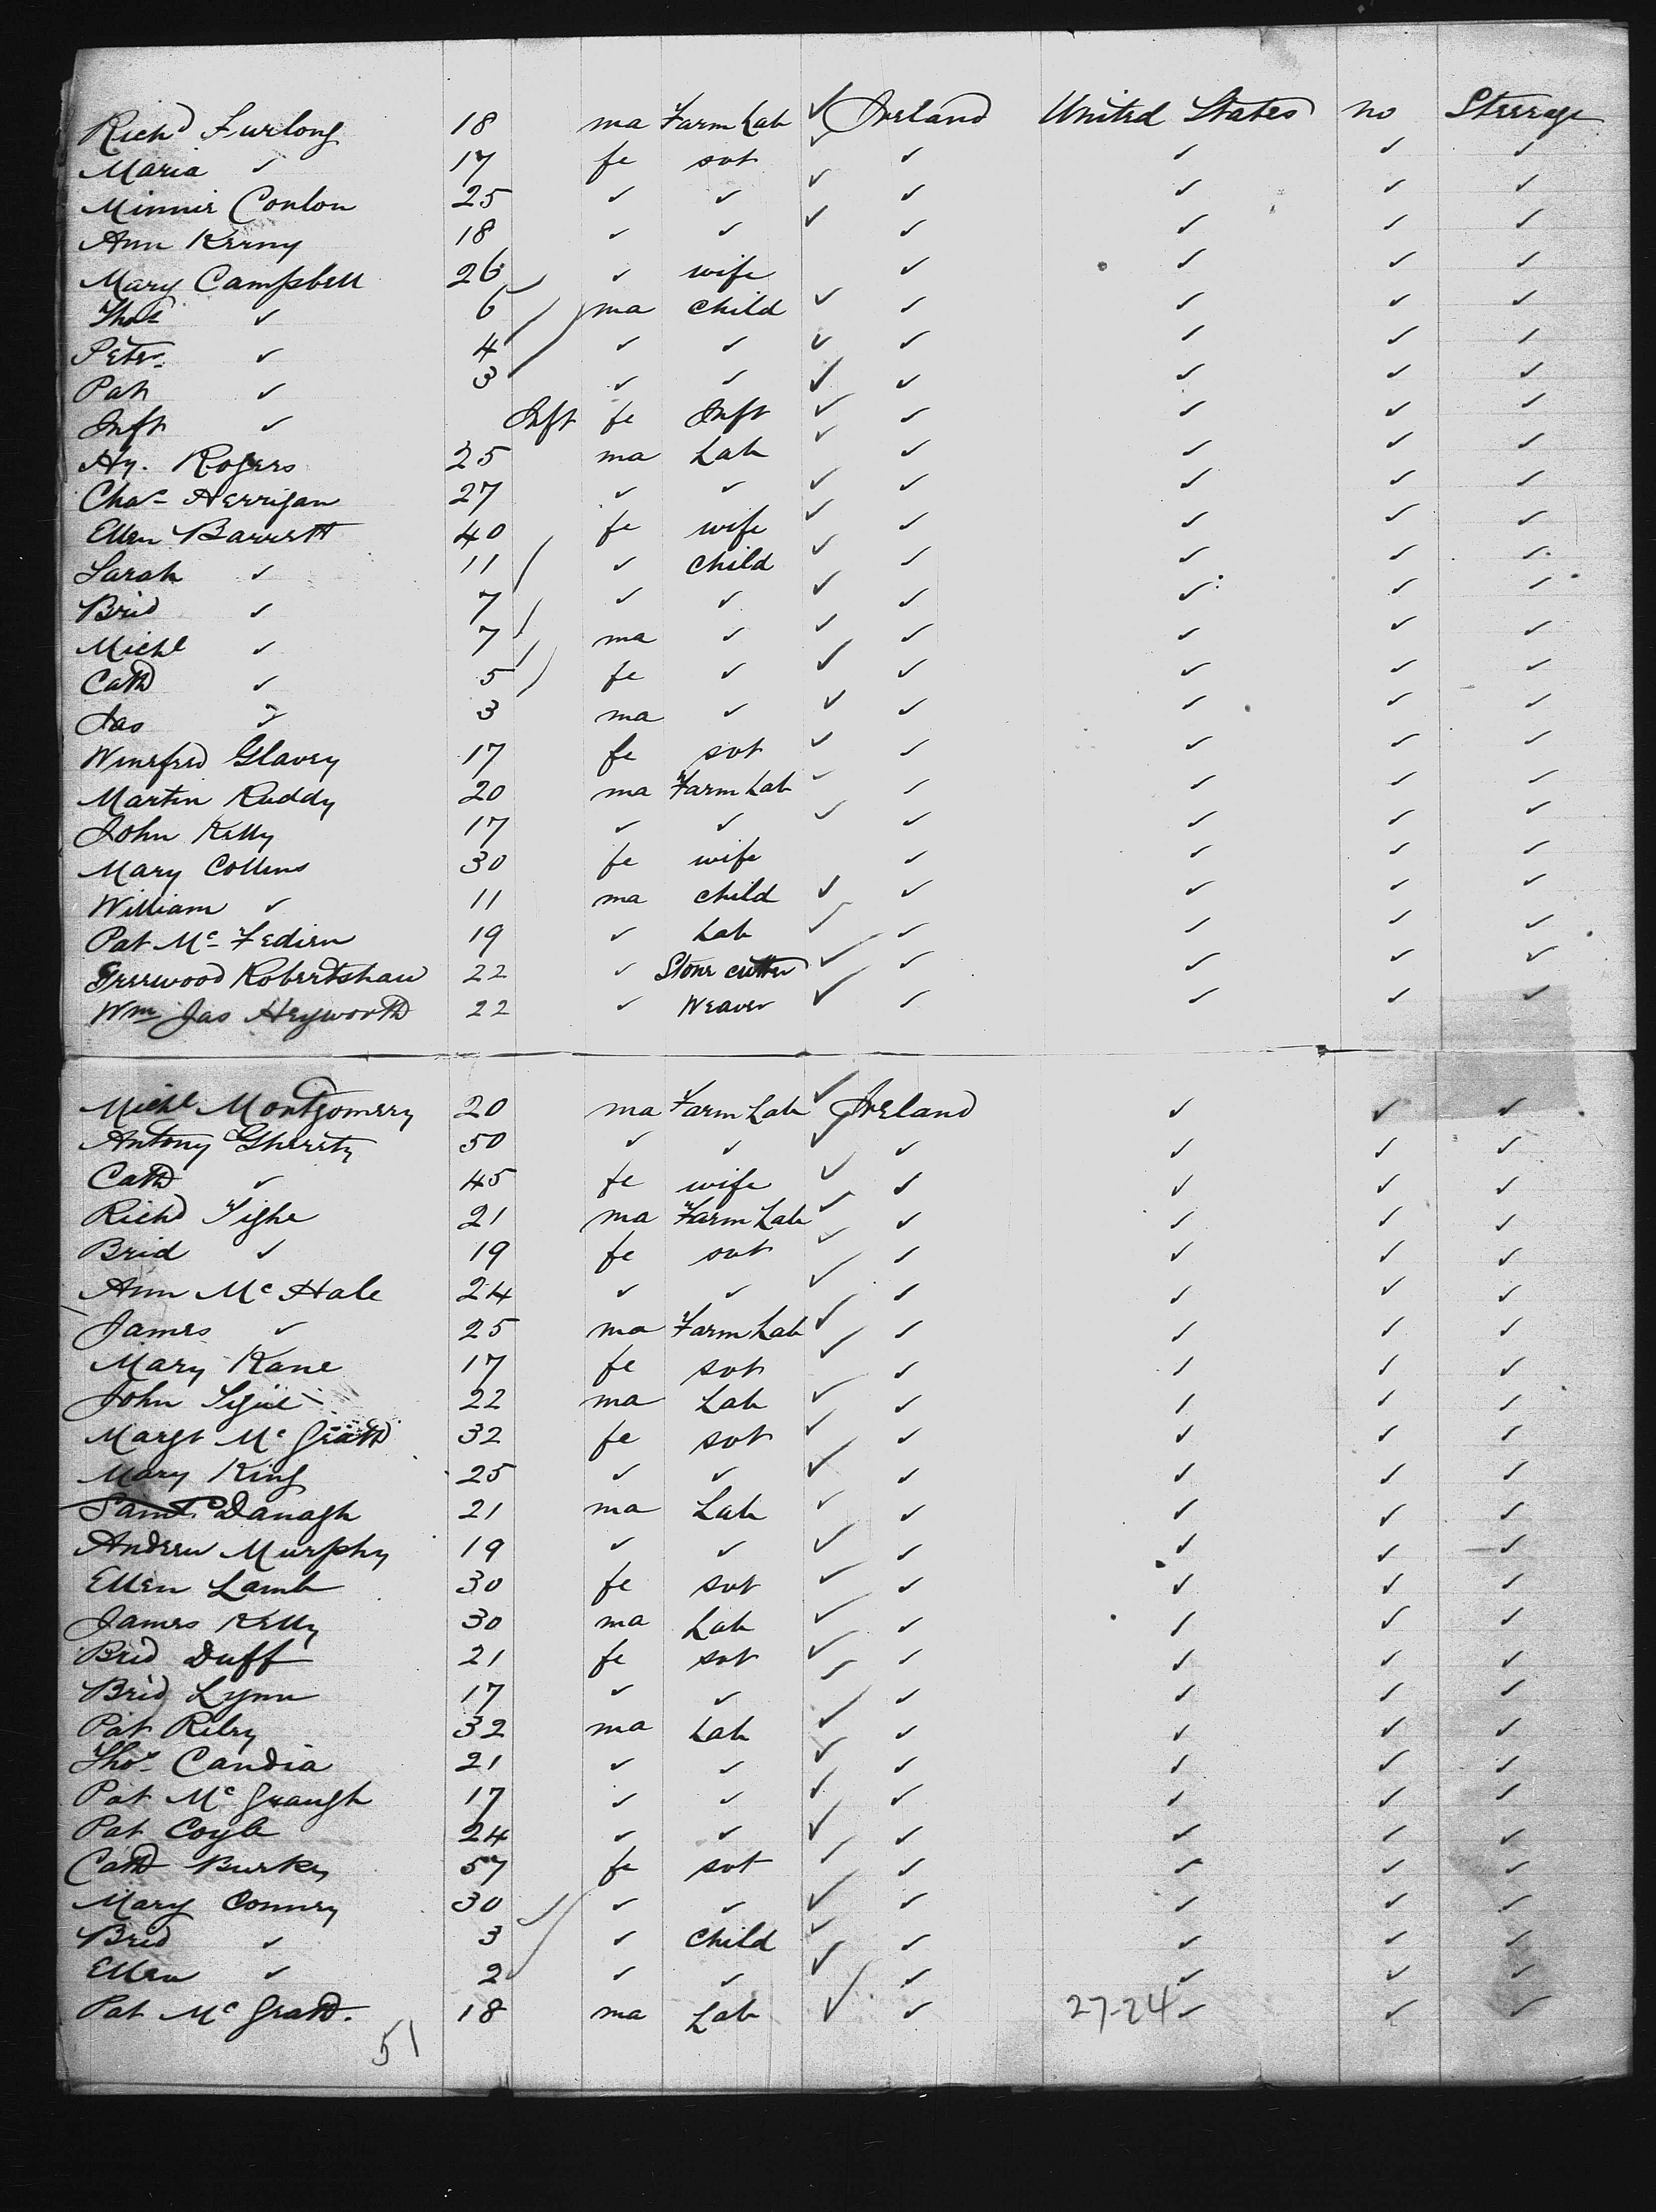 Richd Furlong 18 ma Farm Lab ✓ Ireland United States no Steerage
Maria ✓ 17 fe svt ✓ ✓ ✓ ✓ ✓
Minnie Conlon 25 ✓ ✓ ✓ ✓ ✓ ✓ ✓
Ann Kerny 18 ✓ ✓ ✓ ✓ ✓ ✓ ✓
Mary Campbell 26 ✓ wife ✓ ✓ ✓ ✓
Thos ✓ 6 ma child ✓ ✓ ✓ ✓ ✓
Peter ✓ 4 ✓ ✓ ✓ ✓ ✓ ✓ ✓
Pat ✓ 3 ✓ ✓ ✓ ✓ ✓ ✓ ✓
Inft ✓ Inft fe Inft ✓ ✓ ✓ ✓ ✓
Hy. Rogers 25 ma Lab ✓ ✓ ✓ ✓ ✓
Chas Herrigan 27 ✓ ✓ ✓ ✓ ✓ ✓ ✓
Ellen Barrett 40 fe wife ✓ ✓ ✓ ✓ ✓
Sarah ✓ 11 ✓ child ✓ ✓ ✓ ✓ ✓
Brid ✓ 7 ✓ ✓ ✓ ✓ ✓ ✓ ✓
Michl ✓ 7 ma ✓ ✓ ✓ ✓ ✓ ✓
Cath ✓ 5 fe ✓ ✓ ✓ ✓ ✓ ✓
Jas ✓ 3 ma ✓ ✓ ✓ ✓ ✓ ✓
Winefred Glavey 17 fe svt ✓ ✓ ✓ ✓ ✓
Martin Ruddy 20 ma Farm Lab ✓ ✓ ✓ ✓ ✓
John Kelly 17 ✓ ✓ ✓ ✓ ✓ ✓ ✓
Mary Collins 30 fe wife ✓ ✓ ✓ ✓
William ✓ 11 ma child ✓ ✓ ✓ ✓ ✓
Pat Mc Fedirn 19 ✓ Lab ✓ ✓ ✓ ✓ ✓
Greenwood Robertshaw 22 ✓ Stone cutter ✓ ✓ ✓ ✓ ✓
Wm Jas Heyworth 22 ✓ Weaver ✓ ✓ ✓ ✓ ✓
Michl Montgomery 20 ma Farm Lab ✓ Ireland ✓ ✓ ✓
Antony Gherity 50 ✓ ✓ ✓ ✓ ✓ ✓ ✓
Cath ✓ 45 fe wife ✓ ✓ ✓ ✓ ✓
Richd Tighe 21 ma Farm Lab ✓ ✓ ✓ ✓ ✓
Brid ✓ 19 fe svt ✓ ✓ ✓ ✓ ✓
Ann Mc Hale 24 ✓ ✓ ✓ ✓ ✓ ✓ ✓
James ✓ 25 ma Farm Lab ✓ ✓ ✓ ✓ ✓
Mary Kane 17 fe svt ✓ ✓ ✓ ✓ ✓
John 22 ma Lab ✓ ✓ ✓ ✓ ✓
Margt Mc Grath 32 fe svt ✓ ✓ ✓ ✓ ✓
Mary King 25 ✓ ✓ ✓ ✓ ✓ ✓ ✓
Saml Danagh 21 ma Lab ✓ ✓ ✓ ✓ ✓
Andrew Murphy 19 ✓ ✓ ✓ ✓ ✓ ✓ ✓
Ellen Lamb 30 fe svt ✓ ✓ ✓ ✓ ✓
James Kelly 30 ma Lab ✓ ✓ ✓ ✓ ✓
Brid Duff 21 fe svt ✓ ✓ ✓ ✓ ✓
Brid Lynn 17 ✓ ✓ ✓ ✓ ✓ ✓ ✓
Pat Riley 32 ma Lab ✓ ✓ ✓ ✓ ✓
Thos Candia 21 ✓ ✓ ✓ ✓ ✓ ✓ ✓
Pat Mc Graugh 17 ✓ ✓ ✓ ✓ ✓ ✓ ✓
Pat Coyle 24 ✓ ✓ ✓ ✓ ✓ ✓ ✓
Cath Burke 57 fe svt ✓ ✓ ✓ ✓ ✓
Mary Connery 30 ✓ ✓ ✓ ✓ ✓ ✓ ✓
Brid ✓ 3 ✓ child ✓ ✓ ✓ ✓ ✓
Ellen ✓ 2 ✓ ✓ ✓ ✓ ✓ ✓ ✓
Pat Mc Grath. 18 ma Lab ✓ ✓ 27-24 ✓ ✓ ✓
51